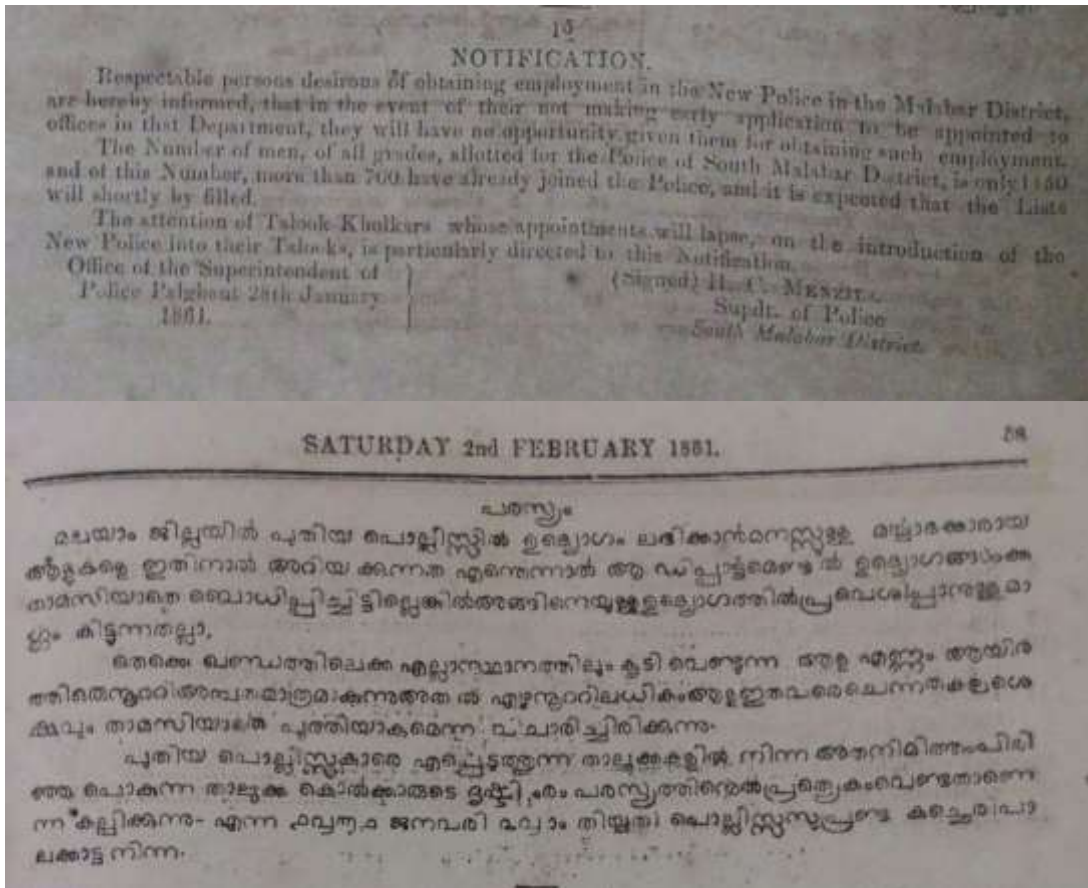 15
NOTIFICATION.
Respectable persons desirous of obtaining employment in the New Police in the Malabar District,
are hereby informed, that in the event of their not making early application to be appointed to
offices in that Department, they will have no opportunity given them for obtaining such employment.
The Number of men, of all grades, allotted for the Police of South Malabar District, is only 1150
and of this Number, more than 700 have already joined the Police, and it is expected that the Lists
will shortly by filled.
The attention of Talook Kholkars whose appointments will lapse, on the introduction of the
New Police into their Talooks, is particularly directed to this Notification.
Office of the Superintendent of
Police Palghaut 28th January
1861.
(Signed) H. C.
Supdt. of Police
South Malabar District.
SATURDAY 2nd FEBRUARY 1861.
പരസ്യം
മലയാം ജില്ലയിൽ പുതിയ പൊല്ലീസ്സിൽ ഉദ്യൊഗം ലഭിക്കാൻമനസ്സുള്ള മൎയ്യാദക്കാരായ
ആളുകളെ ഇതിനാൽ അറിയിക്കുന്നത എന്തെന്നാൽ ആ ഡിപ്പാൎട്ടമെണ്ടിൽ ഉദ്യൊഗങ്ങൾക്ക
താമസിയാതെ ബൊധിപ്പിച്ചിട്ടില്ലെങ്കിൽഅങ്ങിനെയുള്ളഉദ്യൊഗത്തിൽപ്രവെശിപ്പാനുള്ളമാ
ൎഗ്ഗം കിട്ടുന്നതല്ലാ,
തെക്കെ ഖണ്ഡത്തിലെക്ക എല്ലാസ്ഥാനത്തിലും കൂടി വെണ്ടുന്ന ആള എണ്ണം ആയിര
ത്തിതൊനൂററിഅമ്പതമാത്രമാകുന്നുഅതിൽ എഴുനൂററിലധികംആളഇതവരെചെൎന്നതകളശെ
ഷവും താമസിയാതെ പൂൎത്തിയാകുമെന്ന വിചാരിച്ചിരിക്കുന്നു.
പുതിയ പൊല്ലീസ്സുകാരെ എൎപ്പെടുത്തുന്ന താലൂക്കകളിൽ നിന്ന അതനിമിത്തംപിരി
ഞ്ഞു പൊകുന്ന താലൂക്ക കൊൽക്കാരുടെ ദൃഷ്ടി പരസ്യത്തിന്മെൽപ്രത്യെകംവെണ്ടതാണെ
ന്ന കല്പിക്കുന്നു- എന്ന ൧൮൬൧ ജനവരി ൨൮ാം തിയ്യതി പൊല്ലീസ്സുസുപ്രണ്ട കച്ചെരി പാ
ലക്കാട്ട നിന്ന.